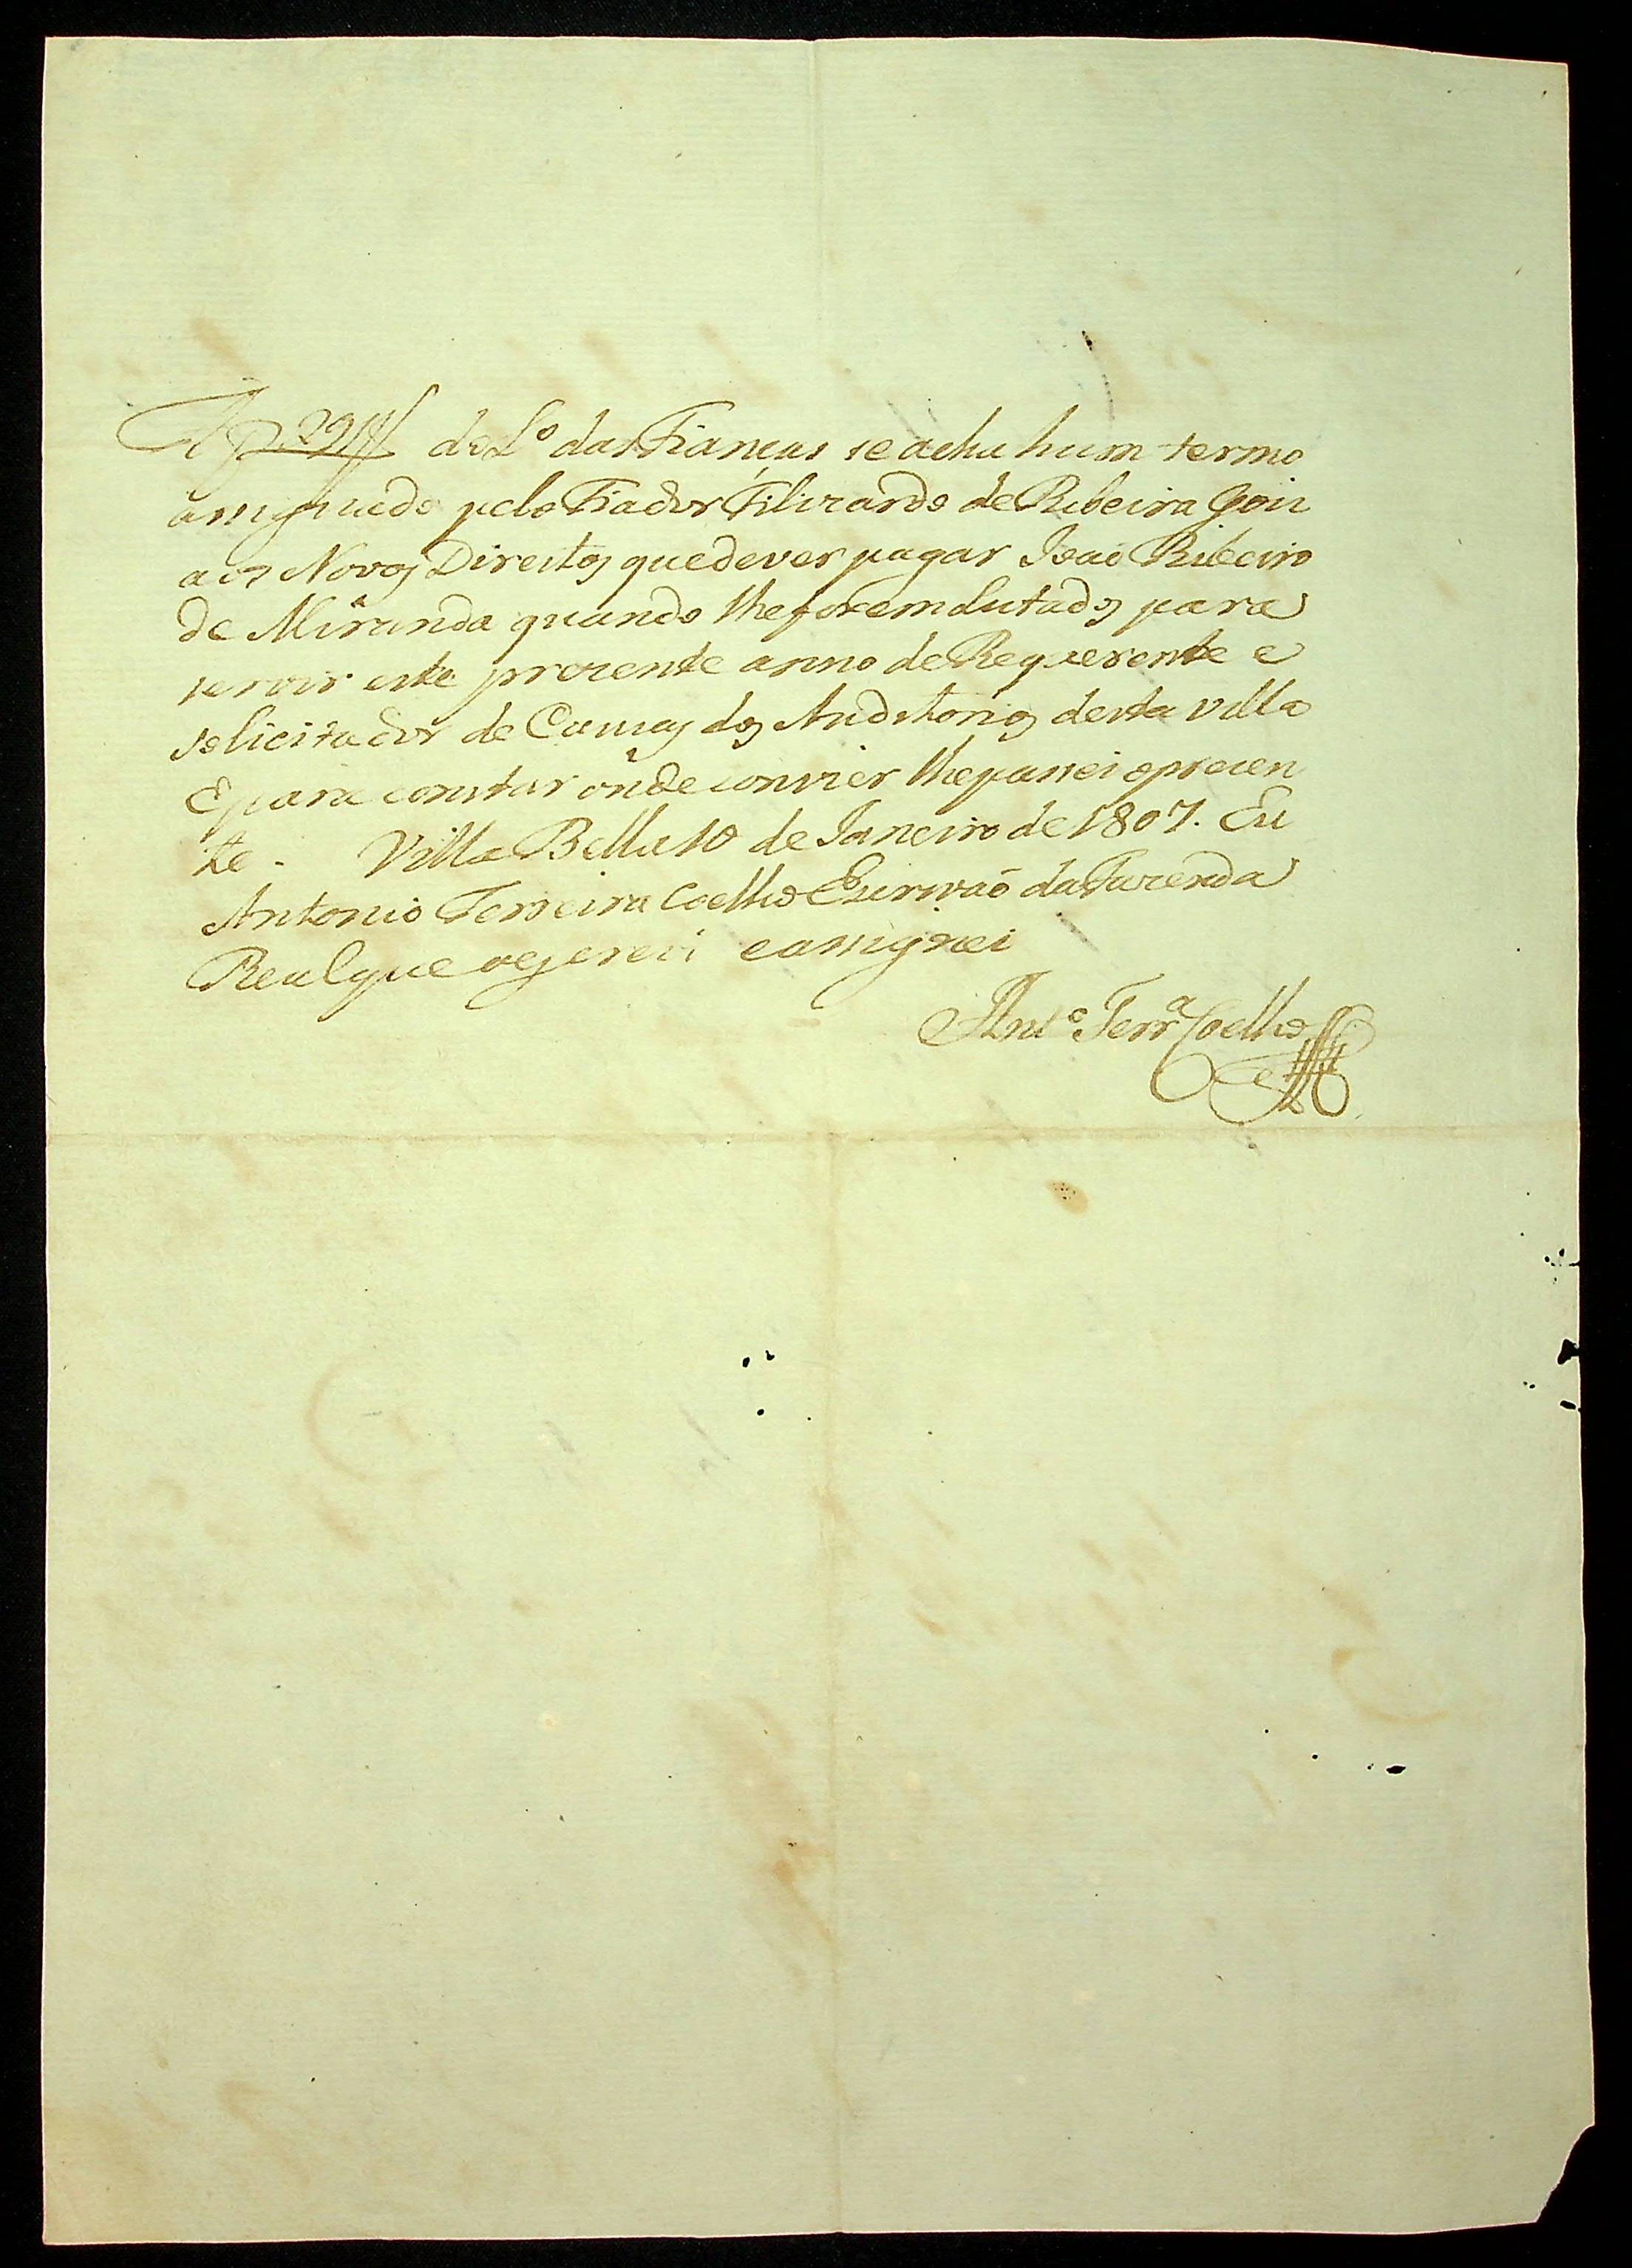 A f 29 do L.º das Fianças se acha hum termo
assignado pelo Fiador Felizardo de Ribeira
aos Novos Direitos que dever pagar Joaõ Ribeiro
de Miranda quando lhe forem lutados para
servir este prezente anno de Requerente e
solicitador de Cauzas dos Auditorios desta villa
E para constar onde convier lhe passei o prezen
te. Villa Bella 10 de Janeiro de 1807. Eu
Antonio Ferreira Coelho Escrivaõ da Fazenda
Real que o escrevi e assignei
Ant.º Ferr.ª Coelho